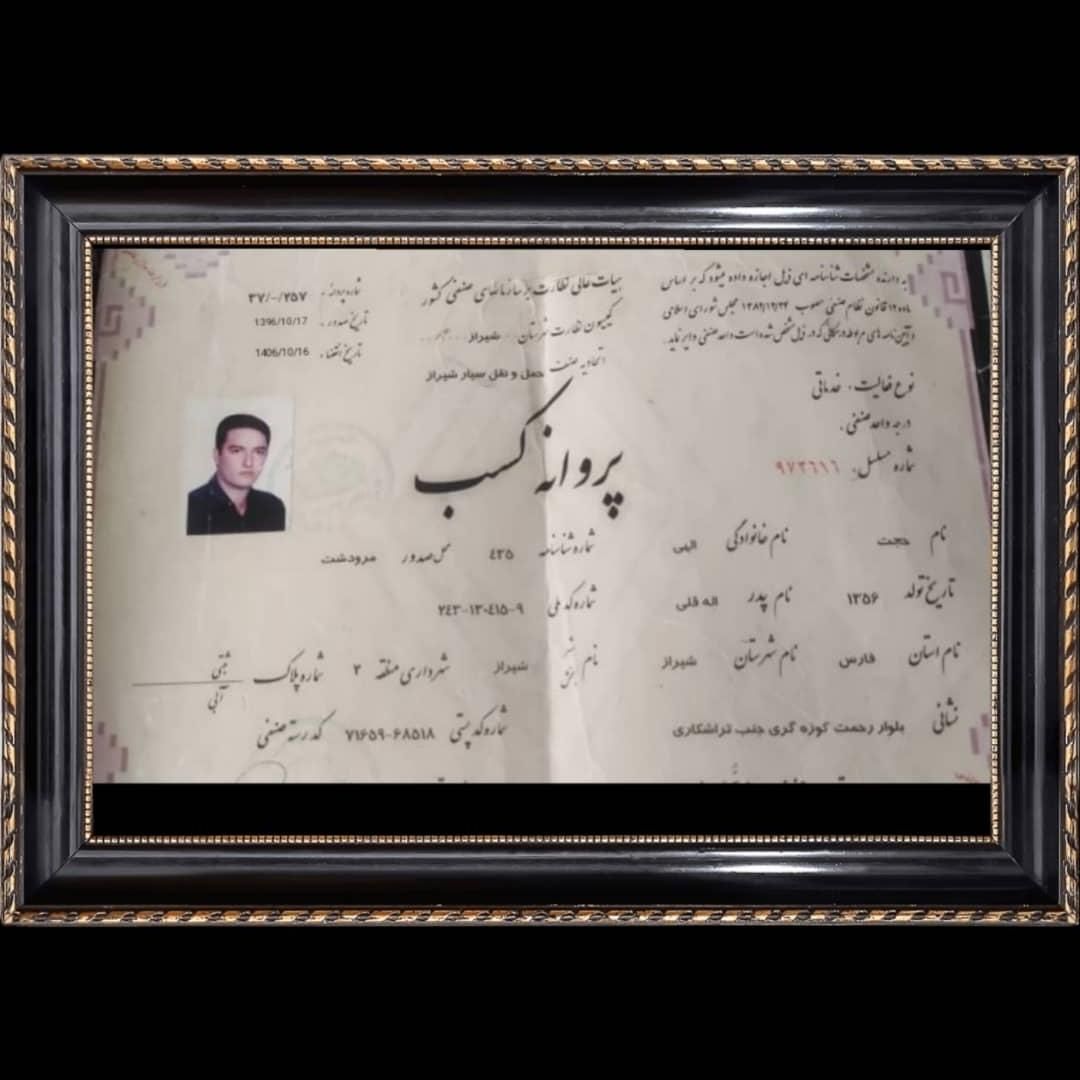 به دارنده مشخصات شناسنامه ای ذیل اجازه داده میشود که بر اساس
ماده ۱۲ قانون نظام صنفی مصوب ۱۳۸۲/۱۲/۲۴ مجلس شورای اسلامی
و آیین نامه های مربوطه در محلی که در ذیل مشخص شده است واحد صنفی دایر نماید.
هیات عالی نظارت بر سازمانهای صنفی کشور
کمیسیون نظارت شهرستان شیراز
اتحادیه صنف حمل و نقل سیار شیراز
شماره پروانه: ۳۷/-/۲۵۷
تاریخ صدور: 1396/10/17
تاریخ انقضاء: 1406/10/16
نوع فعالیت: خدماتی
درجه واحد صنفی:
شماره مسلسل: ۹۷۳٦۱٦
پروانه کسب
نام حجت نام خانوادگی الهی شماره شناسنامه ٤٣٥ محل صدور مرودشت
تاریخ تولد ۱۳۵۶ نام پدر اله قلی شماره کد ملی ۲٤۳-۱۳۰٤۱۵-۹
نام استان فارس نام شهرستان شیراز نام شهر بخش شیراز شهرداری منطقه ۳ شماره پلاک ثبتی آبی
نشانی بلوار رحمت کوزه گری جنب تراشکاری شماره کد پستی ۷۱۶۵۹-۶۸۵۱۸ کد رسته صنفی